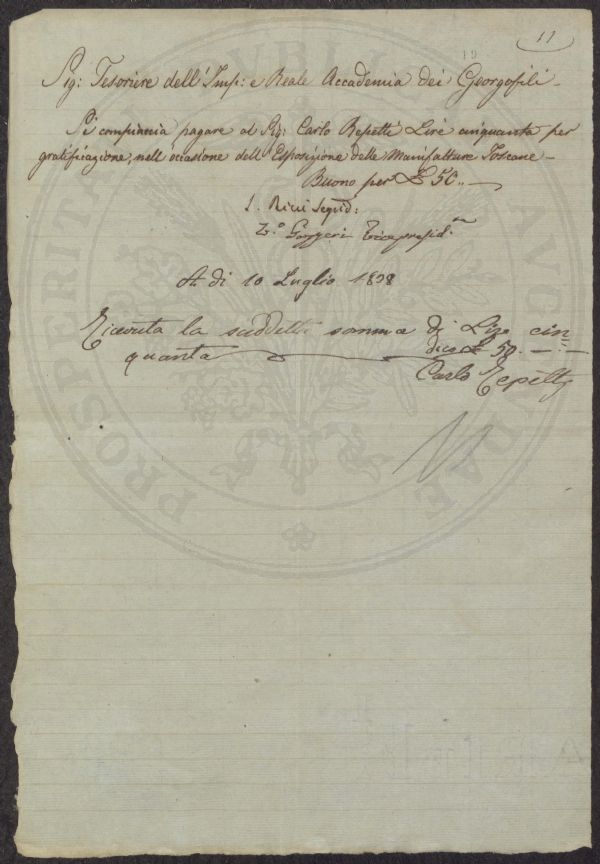 11
19
Sig: Tesoriere dell'Imp: e Reale Accademia dei Georgofili
Si compiaccia pagare al Sig: Carlo Repetti Lire cinquanta per
gratificazione, nell'occasione dell'Esposizione delle Manifatture Toscane
Buono per £ 50..
L. Ricci Segret:
Vicepresid.
A dì 10 Luglio 1838
Ricevuta la suddetta somma di Lire cin
quanta dico £ 50.
Carlo Repetti
PROSPERITATI PUBLICAE AUGENDAE